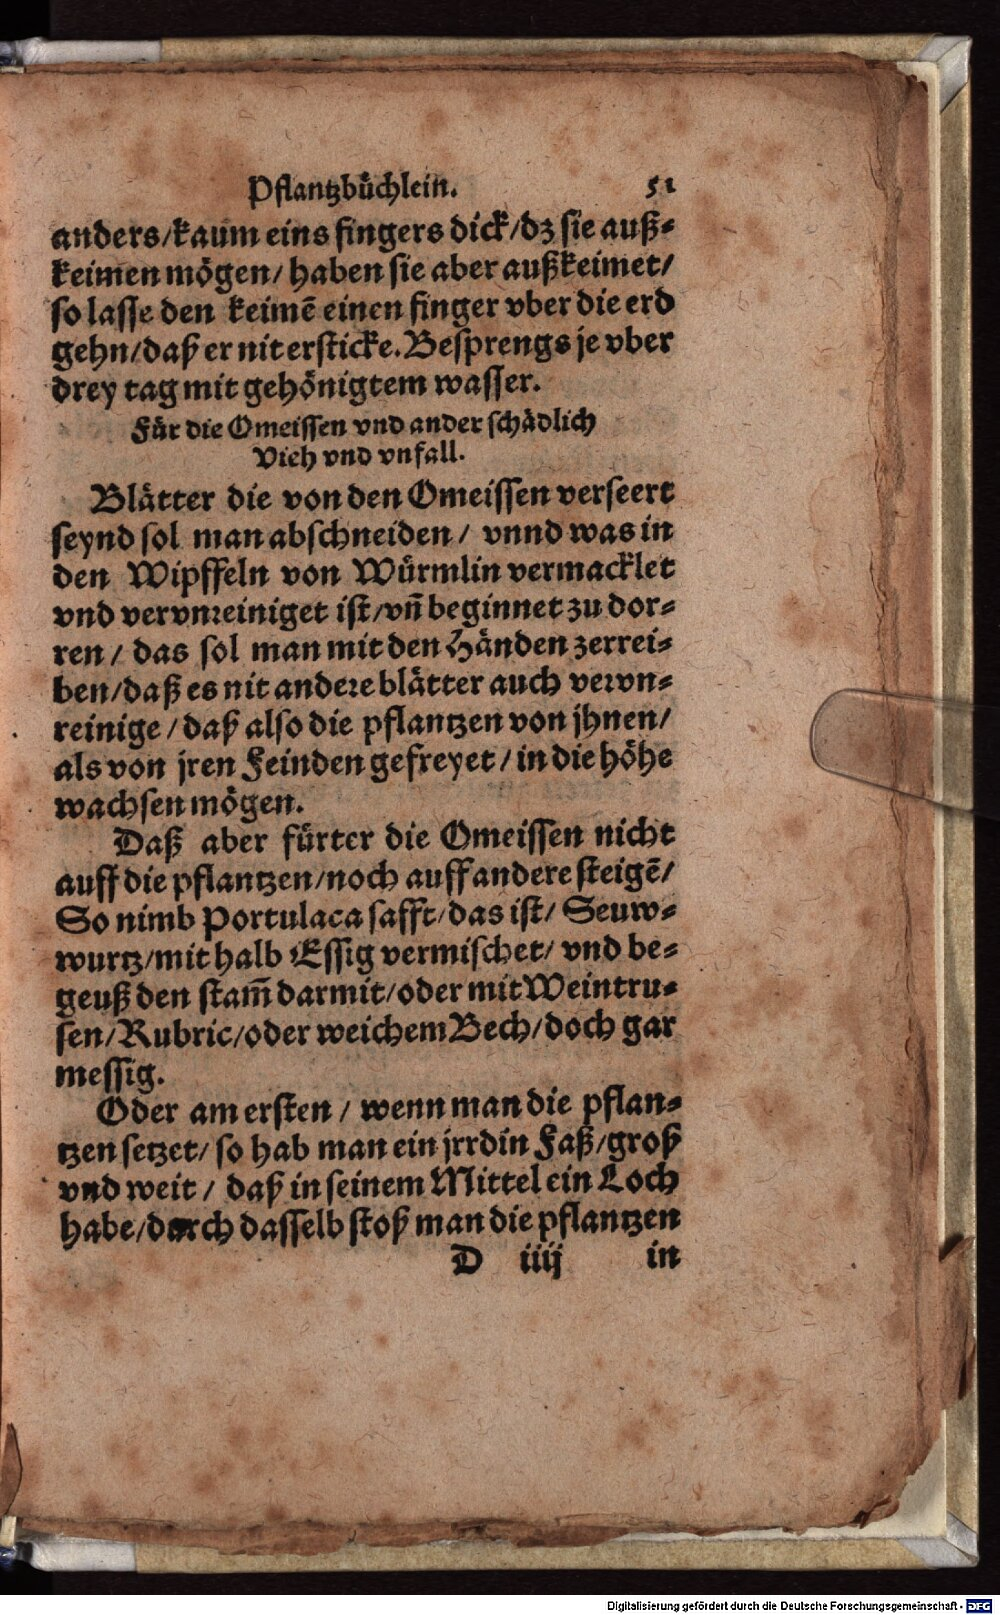 Pflantzbüchlein. 51
anders/kaum eins fingers dick/dz sie auß-
keimen mögen/ haben sie aber außkeimet/
so lasse den keimẽ einen finger vber die erd
gehn/daß er nit ersticke. Besprengs je vber
drey tag mit gehönigtem wasser.
Für die Omeissen vnd ander schädlich
Vieh vnd vnfall.
Blätter die von den Omeissen verseert
seynd sol man abschneiden/ vnnd was in
den Wipffeln von Würmlin vermacklet
vnd vervnreiniget ist/vñ beginnet zu dor-
ren/ das sol man mit den Händen zerrei-
ben/daß es nit andere blätter auch vervn-
reinige/daß also die pflantzen von jhnen/
als von jren Feinden gefreyet/in die höhe
wachsen mögen.
Daß aber fürter die Omeissen nicht
auff die pflantzen/noch auff andere steigẽ/
So nimb Portulaca safft/das ist/ Seuw-
wurtz/mit halb Essig vermischet/ vnd be-
geuß den stam̃ darmit/oder mit Weintru-
sen/Rubric/oder weichem Bech/doch gar
messig.
Oder am ersten/ wenn man die pflan-
tzen setzet/ so hab man ein jrrdin Faß/groß
vnd weit/ daß in seinem Mittel ein Loch
habe/durch dasselb stoß man die pflantzen
D iiij in
Digitalisierung gefördert durch die Deutsche Forschungsgemeinschaft - DFG